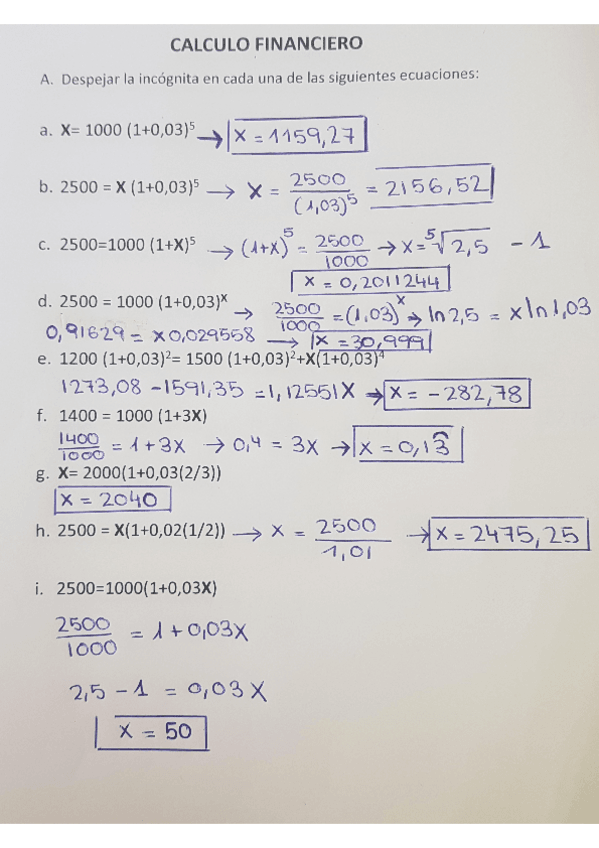 CALCULO FINANCIERO
A. Despejar la incógnita en cada una de las siguientes ecuaciones:
a. X= 1000 (1+0,03)⁵ → X = 1159,27
b. 2500 = X (1+0,03)⁵ → X = 2500/(1,03)⁵ = 2156,52
c. 2500=1000 (1+X)⁵ → (1+X)⁵ = 2500/1000 → X = ⁵√2,5 - 1
X = 0,2011244
d. 2500 = 1000 (1+0,03)ˣ → 2500/1000 = (1,03)ˣ → ln 2,5 = x ln 1,03
0,91629 = x 0,029558 → X = 30,999
e. 1200 (1+0,03)²= 1500 (1+0,03)²+X(1+0,03)⁴
1273,08 - 1591,35 = 1,12551X → X = -282,78
f. 1400 = 1000 (1+3X)
1400/1000 = 1 + 3X → 0,4 = 3X → X = 0,13̂
g. X= 2000(1+0,03(2/3))
X = 2040
h. 2500 = X(1+0,02(1/2)) → X = 2500/1,01 → X = 2475,25
i. 2500=1000(1+0,03X)
2500/1000 = 1 + 0,03X
2,5 - 1 = 0,03 X
X = 50